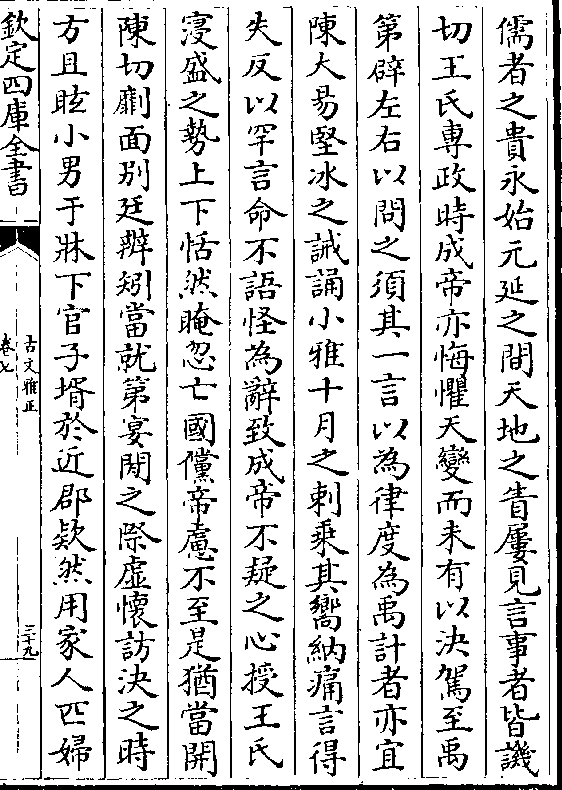 儒者之貴永始元延之間天地之眚屢見言事者皆譏
切王氏專政時成帝亦悔懼天變而未有以決駕至禹
第辟左右以問之須其一言以為律度為禹計者亦宜
陳大易堅冰之誡誦小雅十月之刺乗其嚮納痛言得
失反以罕言命不語怪為辭致成帝不疑之心授王氏
寖盛之勢上下恬然晻忽亡國儻帝慮不至是猶當開
陳切劘面別廷辨矧當就第宴閒之際虛懷訪決之時
方且眩小男于牀下官子壻於近郡欵然用家人匹婦
欽定四庫全書
古文雅正
卷七
三十九